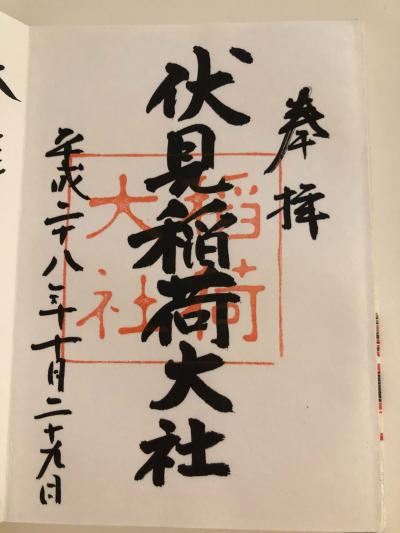 奉拝
伏見稲荷大社
稲荷
大社
平成二十八年十月二十九日